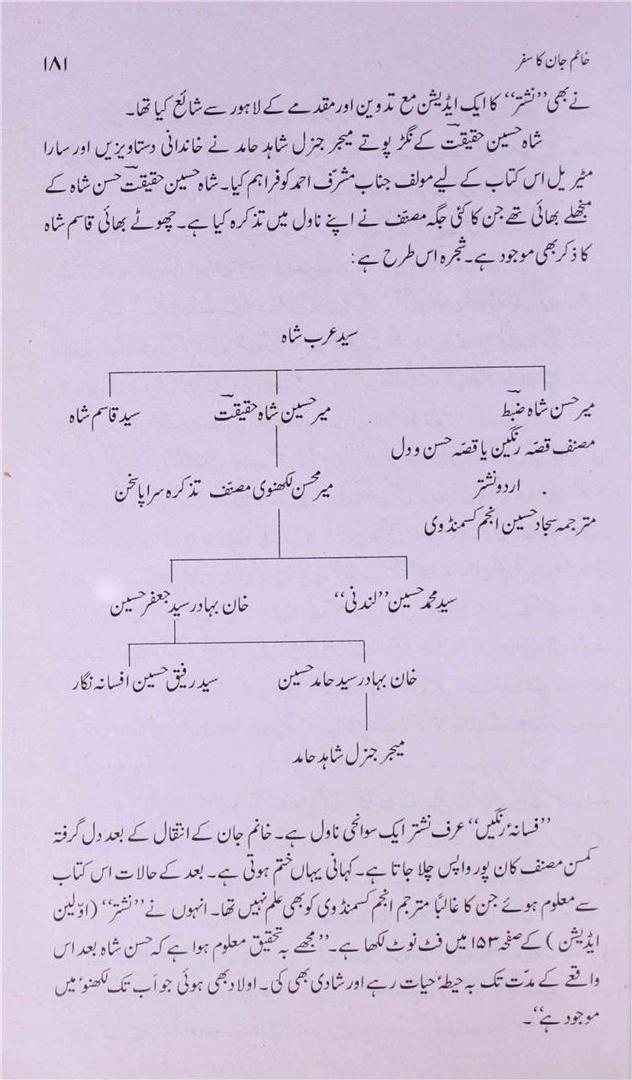 خانم جان کا سفر ۱۸۱
نے بھی ’’نشتر‘‘ کا ایک ایڈیشن مع تدوین اور مقدمے کے لاہور سے شائع کیا تھا۔
شاہ حسین حقیقتؔ کے نگڑ پوتے میجر جنرل شاہد حامد نے خاندانی دستاویزیں اور سارا
مٹیریل اس کتاب کے لیے مولف جناب مشرف احمد کو فراہم کیا۔ شاہ حسین حقیقتؔ حسن شاہ کے
منجھلے بھائی تھے جن کا کئی جگہ مصنّف نے اپنے ناول میں تذکرہ کیا ہے۔ چھوٹے بھائی قاسم شاہ
کا ذکر بھی موجود ہے۔ شجرہ اس طرح ہے:
سید عرب شاہ
میر حسن شاہ ضبطؔ میر حسین شاہ حقیقتؔ سید قاسم شاہ
مصنف قصّہ رنگین یا قصّہ حسن و دل
اردو نشتر میر محسن لکھنوی مصنّف تذکرہ سراپا سخن
مترجمہ سجاد حسین انجم کسمنڈوی
سید محمد حسین ’’لندنی‘‘ خان بہادر سید جعفر حسین
خان بہادر سید حامد حسین سید رفیق حسین افسانہ نگار
میجر جنرل شاہد حامد
’’فسانۂ رنگیں‘‘ عرف نشتر ایک سوانحی ناول ہے۔ خانم جان کے انتقال کے بعد دل گرفتہ
کمسن مصنف کان پور واپس چلا جاتا ہے۔ کہانی یہاں ختم ہوتی ہے۔ بعد کے حالات اس کتاب
سے معلوم ہوئے جن کا غالباً مترجم انجم کسمنڈوی کو بھی علم نہیں تھا۔ انہوں نے ’’نشتر‘‘ (اوّلین
ایڈیشن) کے صفحہ ۱۵۳ میں فٹ نوٹ لکھا ہے۔ ’’مجھے بہ تحقیق معلوم ہوا ہے کہ حسن شاہ بعد اس
واقعے کے مدّت تک بہ حیطۂ حیات رہے اور شادی بھی کی۔ اولاد بھی ہوئی جو اَب تک لکھنؤ میں
موجود ہے‘‘۔